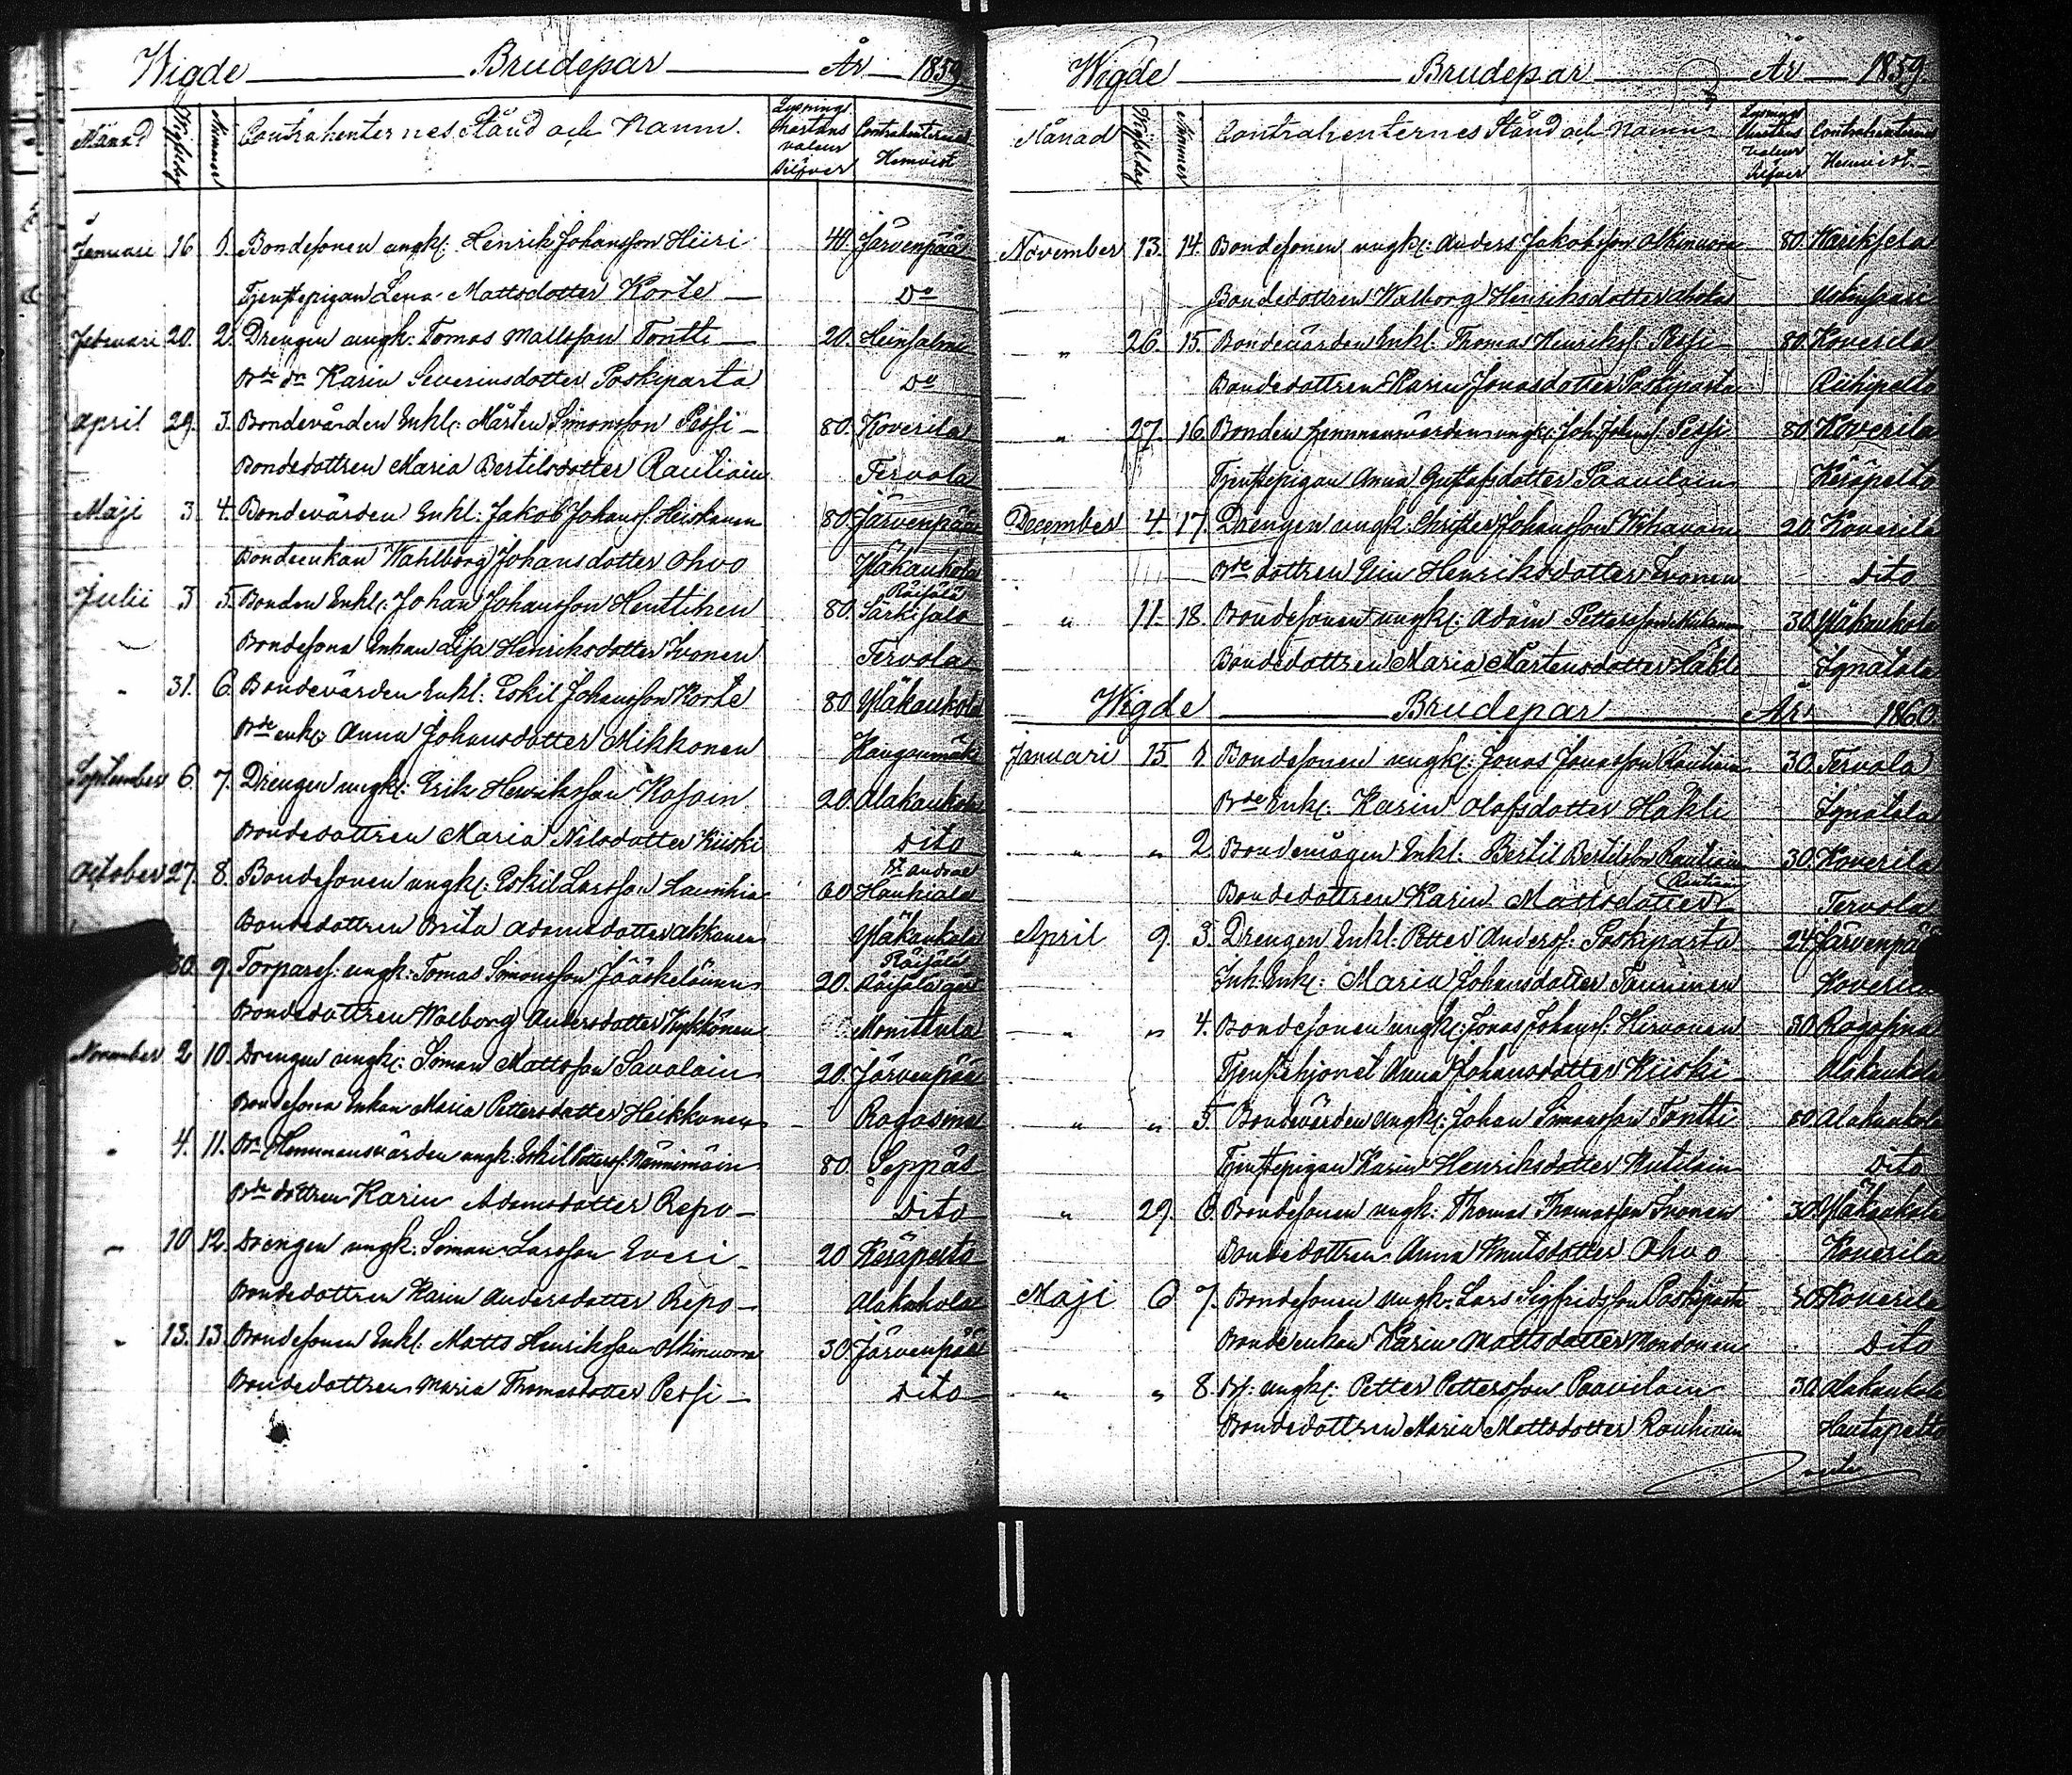 Wigde Brudepar År 1859
Månad Wigseldag Nummer Contrahenternes Stånd och Namn. Lysnings Chartans valeur Silfver Contrahenternas Hemvist
Januari 16 1. Bondesonen ungk: Henrik Johansson Hiiri 40. Järvenpää
Tjenstepigan Lena Mattsdotter Korte Do
Februari 20. 2. Drengen ungk: Tomas Mattsson Tontti 20. Heinjalmi
Bde dr Karin Severinsdotter Poskiparta Do
April 29. 3. Bondevärden Enkl: Mårten Simonsson Pessi 80. Koverila
Bondedottren Maria Bertilsdotter Rautiain Tervola
Maji 3. 4. Bondevärden Enkl: Jakob Johanss. Heiskanen 80. Järvenpää
Bondeenkan Wahlborg Johansdotter Ohvo Yläkaukola
Julii 3 5. Bonden Enkl: Johan Johansson Henttinen 80. Räisälä Särkisalo
Bondesons Enkan Lisa Henriksdotter Ivonen Tervola
" 31. 6. Bondevärden Enkl: Eskil Johansson Korte 80. Yläkaukola
Bde enk: Anna Johansdotter Mikkonen Kangasmäki
September 6. 7. Drengen ungk: Erik Henriksson Kosoin 20. Alakaukola
Bondedottren Maria Nilsdotter Kiiski Dito
October 27. 8. Bondesonen ungk: Eskil Larsson Haunhia 60 St Andrae Haukiala
Bondedottren Brita Adamsdotter Akkanen Yläkaukola
30. 9. Torpares: ungk: Tomas Simonsson Jääskeläinen 20. Räisälä Räisälä gård
Bondedottren Walborg Andersdotter Kykkönen Monttula
November 2 10. Drengen ungk: Simon Mattsson Savolain 20. Järvenpää
Bondesons Enkan Maria Pettersdotter Heikkonen Rogosina
" 4. 11. Bde Hemmansvärden ungk: Eskil Petterss: Nännimäin 80. Seppäs
Bde dottren Karin Adamsdotter Repo Dito
" 10 12. Drengen ungk: Simon Larsson Everi 20 Kesäpelto
Bondedottren Karin Andersdotter Repo Alakukola
" 13. 13. Bondesonen Enkl: Matts Henriksson Olkinuora 30. Järvenpää
Bondedottren Maria Thomasdotter Pessi Dito
Wigde Brudepar År 1859.
Månad Wigseldag Nummer Contrahenternes Stånd och Namn Lysnings Chartans valeur Silfver Contrahenternas Hemvist
November 13. 14. Bondesonen ungk: Anders Jakobsson Olkinuora 80.
Bondedottren Walborg Henriksdotter
" 26. 15. Bondevärden Enkl: Thomas Henrikss: Pessi 80. Koverila
Bondedottren Karin Jonasdotter Poskiparta Riihipelto
" 27. 16. Bonden Hemmansvärden ungk: Joh: Johans: Pessi 80. Koverila
Tjenstepigan Anna Gustafsdotter Paavilain Kesäpelto
December 4. 17. Drengen ungk: Christer Johansson Wihavain 20. Koverila
Bde dottren Elin Henriksdotter Ivonen Dito
" 11. 18. Bondesonen ungk: Adam Pettersson 30. Yläkaukola
Bondedottren Maria Mårtensdotter Häkli Ignatala
Wigde Brudepar År 1860.
Januari 15. 1. Bondesonen ungk: Jonas Jonasson Rautiain 30. Tervola
Bde Enk: Karin Olofsdotter Häkli Ignatala
" " 2. Bondemågen Enkl: Bertil Bertilsson Rautiain 30. Koverila
Bondedottren Karin Mattsdotter Rautiain Tervola
April 9. 3. Drengen Enkl: Petter Anderss: Poskiparta 24 Järvenpää
Inh: Enk: Maria Johansdotter Tanninen Koverila
" " 4. Bondesonen ungk: Jonas Johanss: Hirvonen 30. Rogosina
Tjenstehjonet Anna Johansdotter Kiiski Alakaukola
" " 5. Bondevärden ungk: Johan Simonsson Tontti 80 Alakaukola
Tjenstepigan Karin Henriksdotter Kutilain Dito
" 29. 6. Bondesonen ungk: Thomas Thomasson Ivonen 30. Yläkaukola
Bondedottren Anna Knutsdotter Ohvo Koverila
Maji 6 7. Bondesonen ungk: Lars Sigfridsson Poskiparta 30 Koverila
Bondeenkan Karin Mattsdotter Mondonen Dito
" " 8. Bs: ungk: Petter Pettersson Paavilain 30. Alakaukola
Bondedottren Maria Mattsdotter Rauhiain Hautapelto